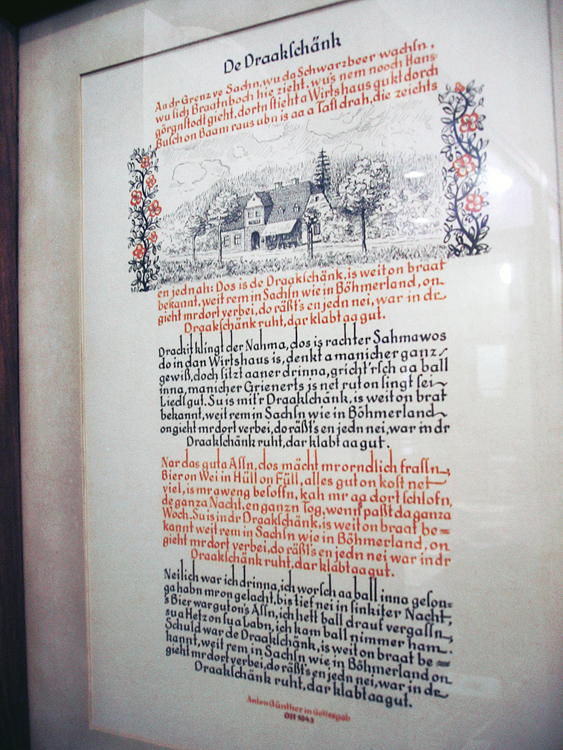 De Draakschänk
An dr Grenz ve Sachn, wu do Schwarzbeer wachsn,
wu sich Braatnboch hie zieht, wu's nem nooch Hans-
görgnstodt gieht, dortn stieht a Wirtshaus gukt dorch
Busch on Baam raus ubn is aa a Tafl drah, die zeichts
en jedn ah: Dos is de Draakschänk, is weit on braat
bekannt, weit rem in Sachsn wie in Böhmerland, on
gieht mr dort verbei, do räßt's en jedn nei, war in dr
Draakschänk ruht, dar klabt aa gut.
Drackit klingt der Nahma, dos is rachter Sahmawos
do in dan Wirtshaus is, denkt a manicher ganz
gewiß, doch sitzt aaner drinna, gricht'r sch aa ball
inna, manicher Grienerts is net rut on singt sei
Liedl gut. Su is mit'r Draakschänk, is weit on brat
bekannt, weit rem in Sachsn wie in Böhmerland
on gieht mr dort verbei, do räßt's en jedn nei, war in dr
Draakschänk ruht, dar klabt aa gut.
Nar das guta Assn, dos mächt mr orndlich frassn,
Bier on Wei in Hüll on Füll, alles gut on kost net
viel, is mr aweng besoffn, kah mr aa dort schlofn,
de ganza Nacht, en ganzn Tog, wenn's paßt da ganza
Woch. Su is in dr Draakschänk, is weit on braat be=
kannt weit rem in Sachsn wie in Böhmerland, on
gieht mr dort verbei, do räßt's en jedn nei war in dr
Draakschänk ruht, dar klabt aa gut.
Neilich war ich drinna, ich worsch aa ball inna geson=
ga habn mr on gelacht, bis tief nei in finkster Nacht,
's Bier war gut on's Assn, ich hett ball drauf vergassn,
su a Hetz on su a Labn, ich kam ball nimmer ham.
Schuld war de Draakschänk, is weit on braat be=
kannt, weit rem in Sachsn wie in Böhmerland on
gieht mr dort verbei, do räßt's en jedn nei, war in dr
Draakschänk ruht, dar klabt aa gut.
Anton Günther in Gottesgab